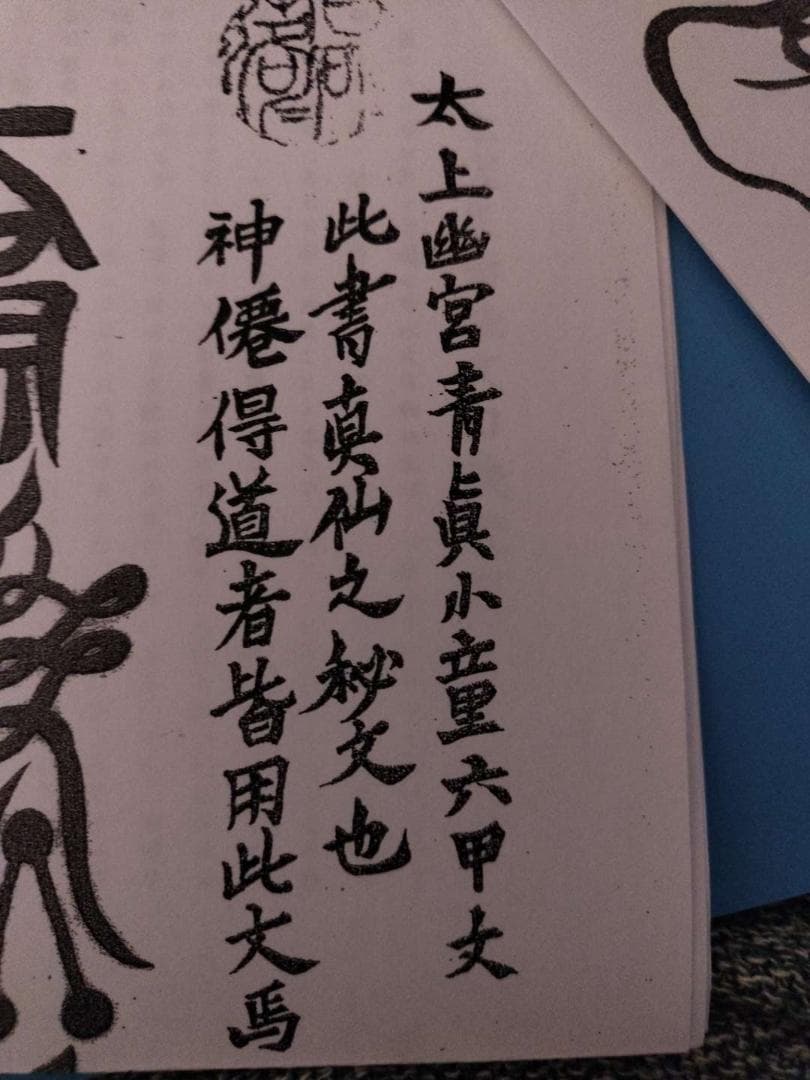 太上幽宮青眞小童六甲文
此書真仙之秘文也
神僊得道者皆用此文焉